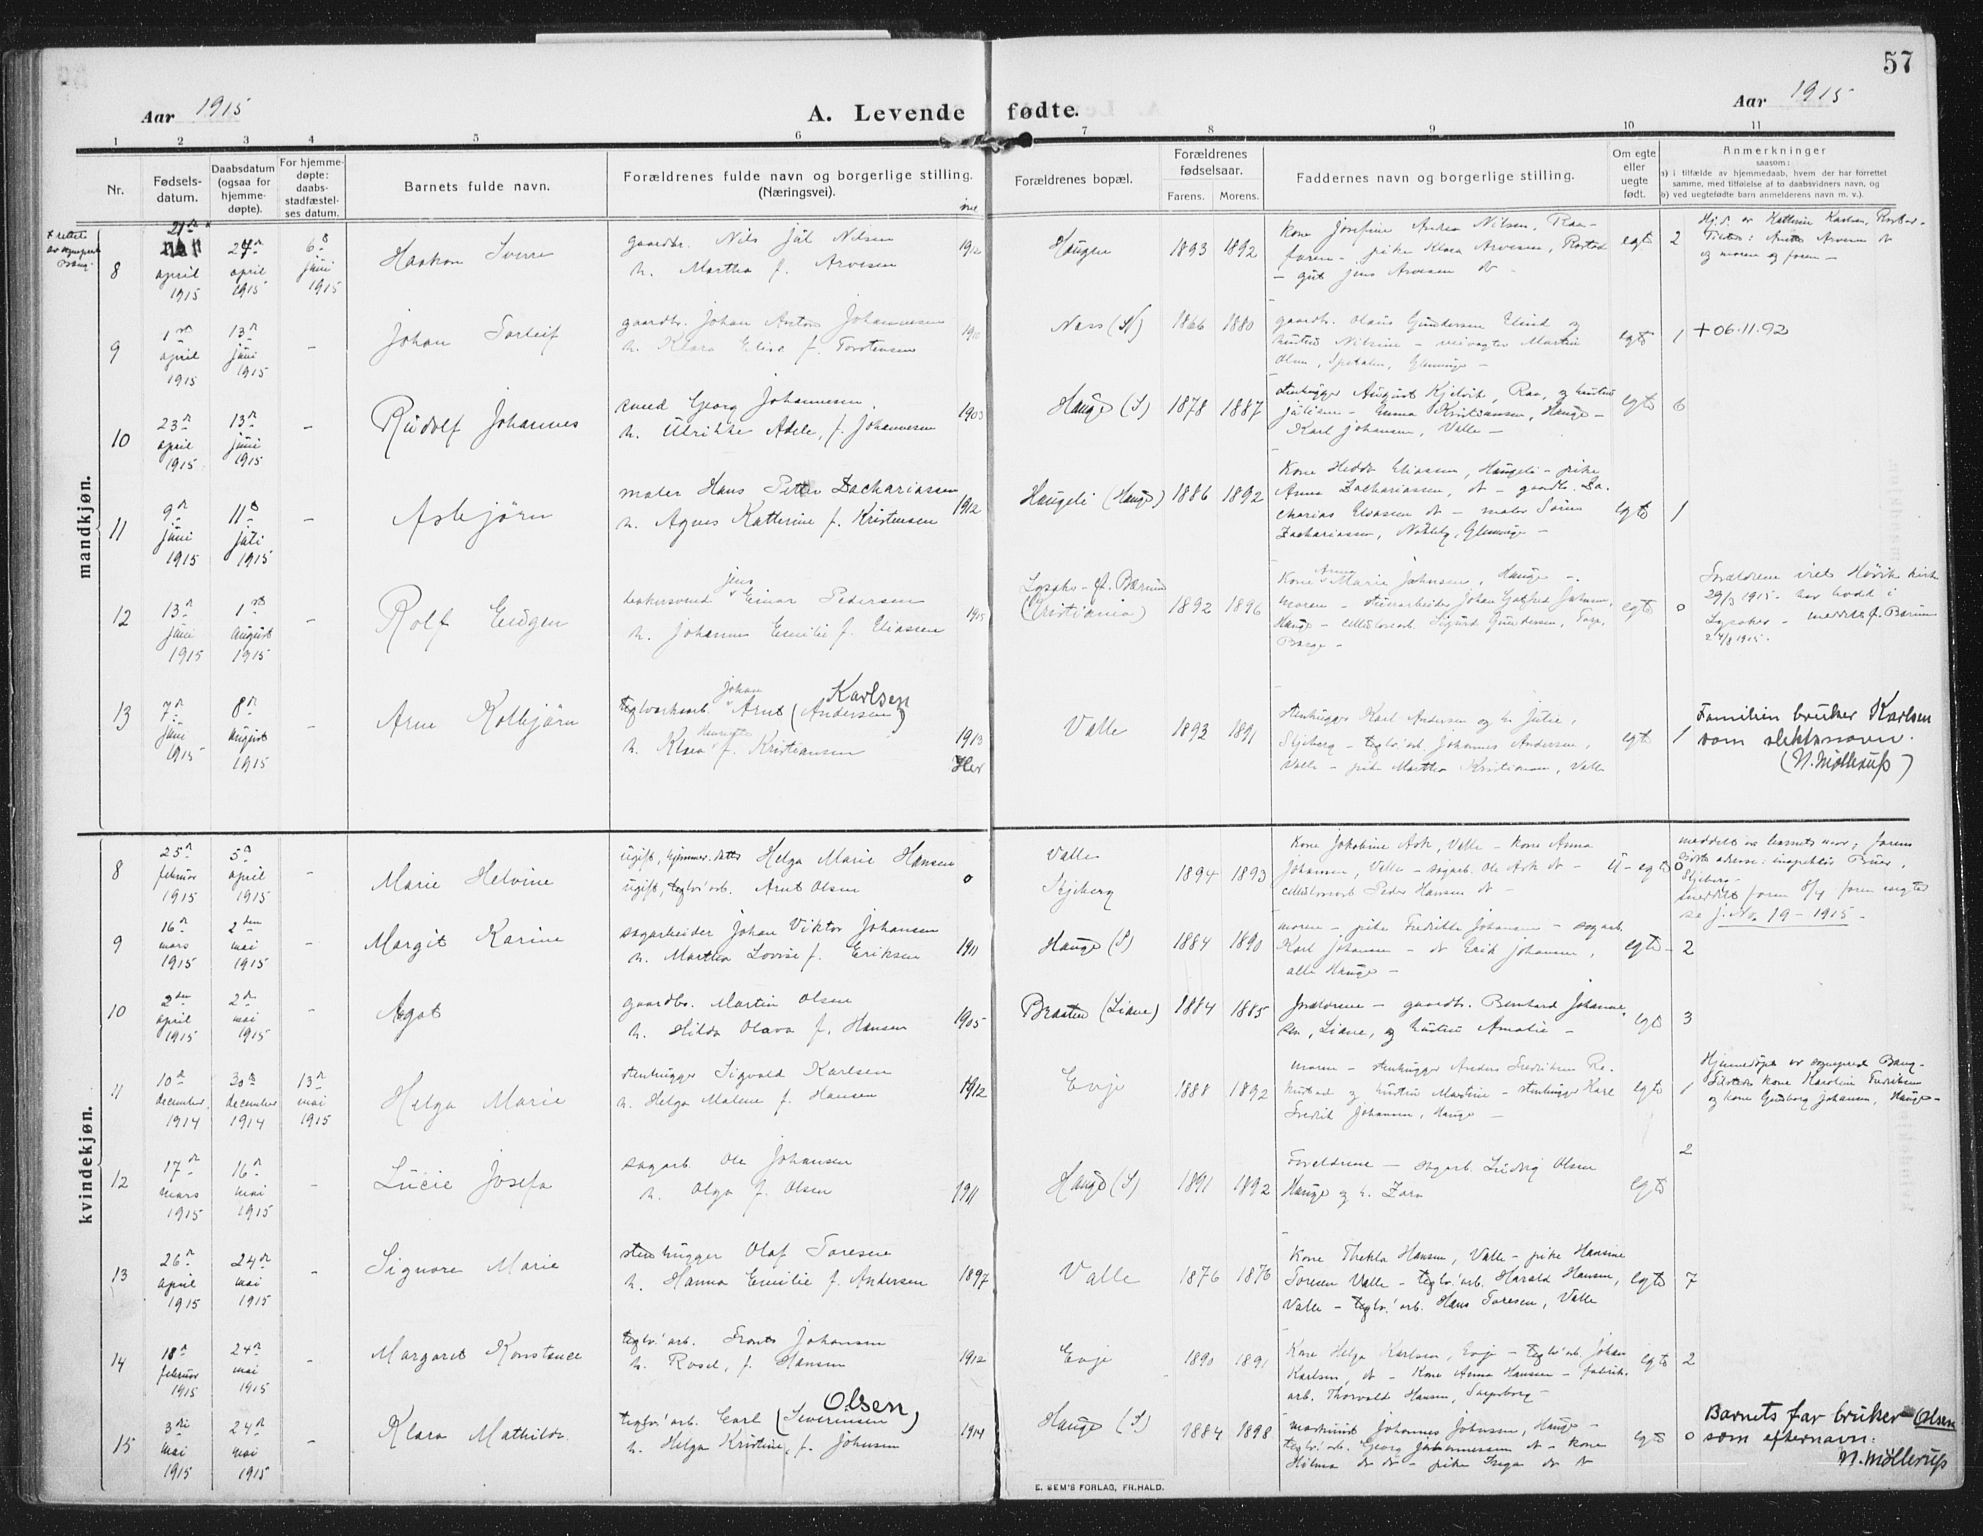 57
Aar 1915
A. Levende fødte.
Aar 1915
1 2 3 4 5 6 7 8 9 10 11
Nr.
Fødsels-
datum.
Daabsdatum
(ogsaa for
hjemme-
døpte).
For hjemme-
døpte:
daabs-
stadfæstel-
ses datum.
Barnets fulde navn.
Forældrenes fulde navn og borgerlige stilling.
(Næringsvei).
Forældrenes bopæl.
Forældrenes
fødselsaar.
Farens. Morens.
Faddernes navn og borgerlige stilling.
Om egte
eller
uegte
født.
Anmerkninger
saasom:
a) i tilfælde av hjemmedaab, hvem der har forrettet
samme, med tilføielse af to daabsvidners navn, og
b) ved uegtefødte barn anmelderens navn m. v.).
mandkjøn.
8
21de
april
1915
24de
april
1915
6te
juni
1915
Haakon Sverre
gaardbr. Nils Jul Nilsen
h. Martha f. Arvesen
1912
Haugen
1893 1892
Kone Josefine Andrea Nilsen, Raa-
faren - pike Klara Arvesen, Rostad
- gut Jens Arvesen dt -
egte 2
og moren og faren -
9
1ste
april
1915
13de
juni
1915
-
Johan Torleif
gaardbr. Johan Anton Johannesen
h. Klara Elise f. Torstensen
Næss (N)
1866 1880
gaardbr. Olaus Gundersen Elind og
hustru Nilsine - veivogter Martin
Olsen, Spetalen, Glemminge -
egte 1
+ 06.11.92
10
23de
april
1915
13de
juni
1915
-
Rudolf Johannes
smed Georg Johannesen
h. Ulrikke Adele, f. Johannesen
1903
Hauge (S)
1878 1887
stenhugger August Kjølvik, Raa, og hustru
Juline - Emma Kristiansen, Hauge -
Karl Johansen, Valle -
egte 6
11
9de
juni
1915
11te
juli
1915
-
Asbjørn
maler Hans Petter Zachariassen
h. Agnes Katherine f. Kristensen
1912
Haugeli (Hauge)
1886 1892
Kone Hedda Eliassen, Haugeli - pike
Anna Zachariassen, dt - gaardb. Za-
charias Eliassen dt - maler
Zachariassen, Glemminge -
egte 1
12
13de
juni
1915
1ste
august
1915
-
Rolf Eugen
bakersvend Jens Einar Pedersen
h. Johanne Emilie f. Eliassen
1915
Lysaker - f. Bærum
(Kristiania)
1892 1896
Kone Anna Marie Johnsen, Hauge -
moren - stenarbeider Johan Gotfred Johnsen,
Hauge - cellulosearb. Sigurd Gundersen, Torp,
Borge -
egte 0
Forældrene viet Høvik kirke
29/3 1915 - har bodd i
Lysaker - meddelt f. Bærum
24/8 1915.
13
7de
juni
1915
8de
august
1915
-
Arne Kolbjørn
teglverksarb. Johan Arnt (Andersen) Karlsen
h. Klara Henriette f. Kristiansen
1913
Her
Valle
1893 1891
stenhugger Karl Andersen og h. Julie,
Skjeberg - teglv.arb. Johannes Andersen,
Valle - pike Martha Kristiansen, Valle
egte 1
Familien bruker Karlsen
som slektsnavn.
(N. Møllerup)
kvindekjøn.
8
25de
februar
1915
5te
april
1915
-
Marie Helvine
ugift, hjemmev. datter Helga Marie Hansen
ugift, teglv.arb. Arnt Olsen
0
Valle
Skjeberg
1894 1893
Kone Jakobine Ask, Valle - Kone Anna
Johansen, Valle - sagarb. Ole Ask dt -
cellulosearb Peder Hansen dt -
u-egte 0
meddelt av barnets mor; farens
sidste adresse: inspektør Buer,
Skjeberg -
meddelt faren 8/4
se J. No. 19 - 1915 -
9
16de
mars
1915
2den
mai
1915
-
Margit Karine
sagarbeider Johan Viktor Johansen
h. Martha Lovise f. Eriksen
1911
Hauge (S)
1884 1890
moren - pike Fredrikke Johansen - sagarb.
Karl Johansen - dt Erik Johansen,
alle Hauge -
egte - 2
10
2den
april
1915
2den
mai
1915
-
Agot
gaardbr. Martin Olsen
h. Hilda Olava f. Hansen
1905
Braaten (Liane)
1884 1885
Forældrene - gaardbr. Bernhard Johanne-
sen, Liane, og hustru Amalie -
egte 3
11
10de
december
1914
30de
december
1914
13de
mai
1915
Helga Marie
stenhugger Sigvald Karlsen
h. Helga Malene f. Hansen
1912
Evje
1888 1892
moren - stenhugger Anders Fredriksen Re-
kustad og hustru Martine - stenhugger Karl
Fredrik Johansen, Hauge -
egte 1
Hjemmedøpt av sogneprest Bang -
Tilstede: kone Karoline Fredriksen
og kone Gudborg Johansen, Hauge -
12
17de
mars
1915
16de
mai
1915
-
Lucie Josefa
sagarb. Ole Johansen
h. Olga f. Olsen
1911
Hauge (S)
1891 1892
Foreldrene - sagarb. Ludvig Olsen
Hauge og h. Zara
egte
2
13
26de
april
1915
24de
mai
1915
-
Signore Marie
stenhugger Olaf Toresen
h. Hanna Emilie f. Andersen
1897
Valle
1876 1876
Kone Thekla Hansen, Valle - pike Hansine
Toresen Valle - teglv.arb. Harald Hansen,
Valle - teglv.arb. Hans Toresen, Valle
egte 7
14
18de
februar
1915
24de
mai
1915
-
Margaret Konstance
teglv.arb. Frants Johansen
h. Rosel, f. Hansen
1912
Evje
1890 1891
Kone Helga Karlsen, Evje - teglv.arb. Johan
Karlsen, dt - Kone Anna Hansen - fabrik-
arb. Thorvald Hansen, Sarpsborg -
egte 2
15
3die
mai
1915
24de
mai
1915
Klara Mathilde
teglv.arb. Carl (Severinsen) Olsen
h. Helga Kristine, f. Johnsen
1914
Hauge (S)
1884 1898
Johannes Johnsen, Hauge -
teglv.arb. Georg Johannessen dt - kone
Hilma dt dt - pike Inga dt dt
egte 0
Barnets far bruker Olsen
som efternavn.
N. Møllerup
E. SEM'S FORLAG, FR.HALD.